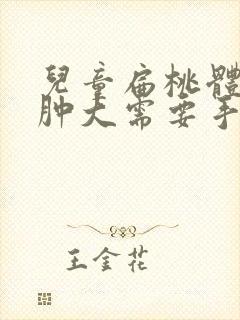 兒童扁桃體
肿大需要手
王金花